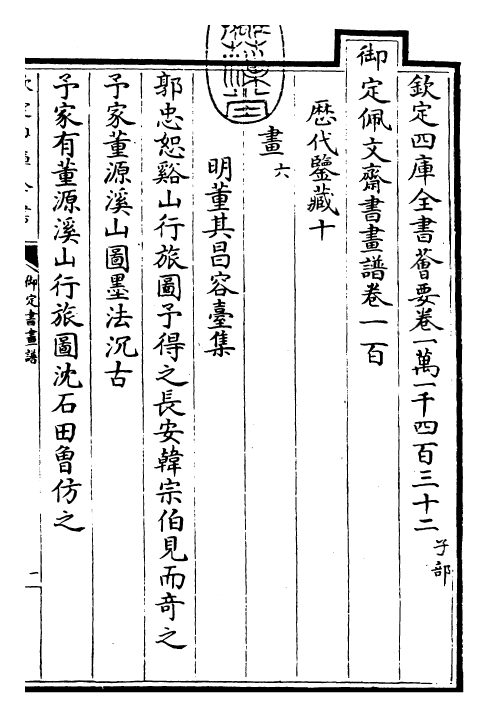 欽定四庫全書薈要卷一萬一千四百三十二 子部
御定佩文齋書畫譜卷一百
歴代鑒藏十
畫六
明董其昌容臺集
郭忠恕谿山行旅圖予得之長安韓宗伯見而竒之
予家董源溪山圖墨法沉古
予家有董源溪山行旅圖沈石田曾仿之
御定書畫譜
一